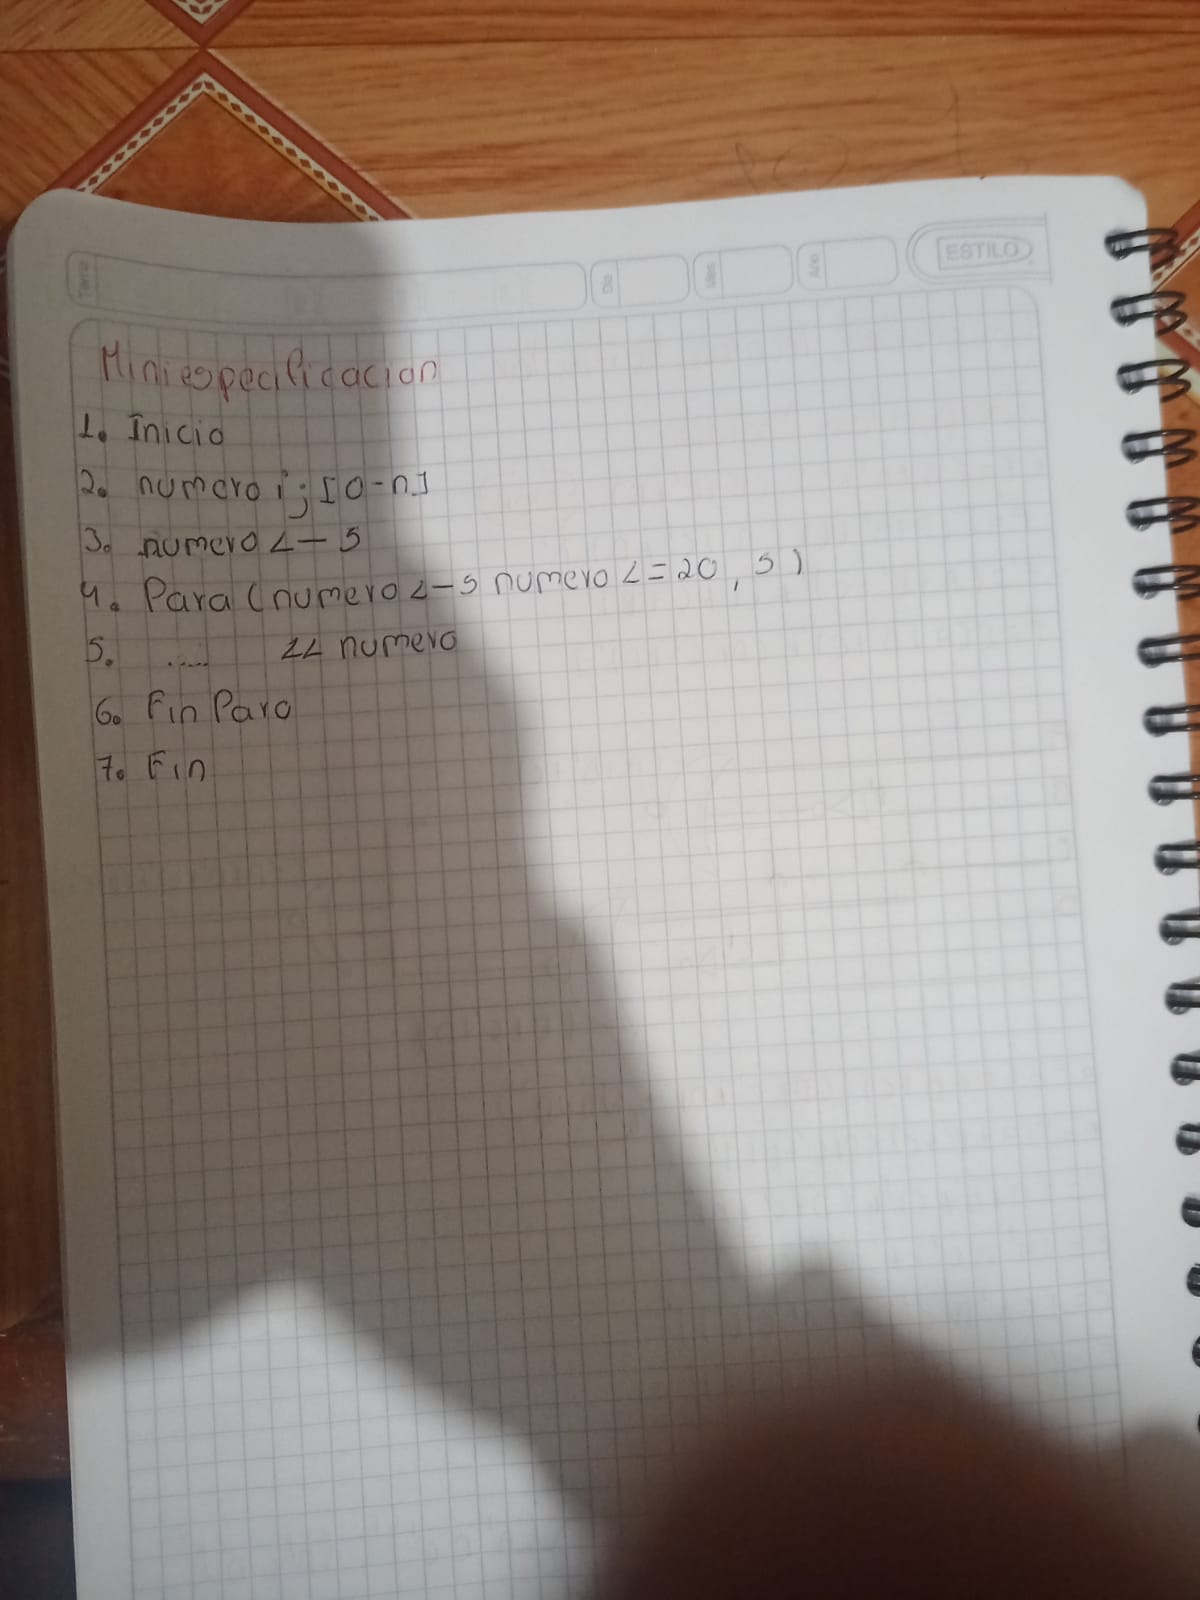 ESTILO
Tema
Día
Mes
Año
Miniespecificacion
1. Inicio
2. numero i; [0-n]
3. numero <- 5
4. Para (numero <- 5 numero <= 20, 5)
5. ..... << numero
6. Fin Para
7. Fin